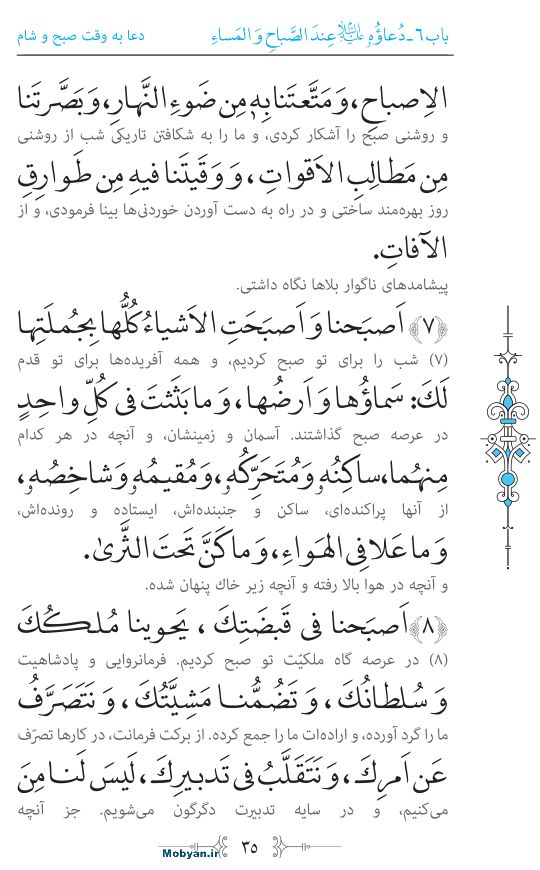 باب ٦ - دُعاؤُهُ عِندَ الصَّباحِ وَ المَساءِ
دعا به وقت صبح و شام
الاِصباحِ، وَ مَتَّعتَنا بِهِ مِن ضَوءِ النَّهارِ، وَ بَصَّرتَنا
و روشنی صبح را آشکار کردی، و ما را به شکافتن تاریکی شب از روشنی
مِن مَطالِبِ الاَقواتِ، وَ وَقَيتَنا فيهِ مِن طَوارِقِ
روز بهره‌مند ساختی و در راه به دست آوردن خوردنی‌ها بینا فرمودی، و از
الآفاتِ.
پیشامدهای ناگوار بلاها نگاه داشتی.
﴿٧﴾ اَصبَحنا وَ اَصبَحَتِ الاَشياءُ كُلُّها بِجُملَتِها
(۷) شب را برای تو صبح کردیم، و همه آفریده‌ها برای تو قدم
لَكَ: سَماؤُها وَ اَرضُها، وَ ما بَثَثتَ فى كُلِّ واحِدٍ
در عرصه صبح گذاشتند. آسمان و زمینشان، و آنچه در هر کدام
مِنهُما، ساكِنُهُ وَ مُتَحَرِّكُهُ، وَ مُقيمُهُ وَ شاخِصُهُ،
از آنها پراکنده‌ای، ساکن و جنبنده‌اش، ایستاده و رونده‌اش،
وَ ما عَلا فِى الهَواءِ، وَ ما كَنَّ تَحتَ الثَّرىٰ.
و آنچه در هوا بالا رفته و آنچه زیر خاك پنهان شده.
﴿٨﴾ اَصبَحنا فى قَبضَتِكَ، يَحوينا مُلكُكَ
(۸) در عرصه گاه ملکیّت تو صبح کردیم. فرمانروایی و پادشاهیت
وَ سُلطانُكَ، وَ تَضُمُّنا مَشِيَّتُكَ، وَ نَتَصَرَّفُ
ما را گرد آورده، و اراده‌ات ما را جمع کرده. از برکت فرمانت، در کارها تصرّف
عَن اَمرِكَ، وَ نَتَقَلَّبُ فى تَدبيرِكَ، لَيسَ لَنا مِنَ
می‌کنیم، و در سایه تدبیرت دگرگون می‌شویم. جز آنچه
٣٥
Mobyan.ir